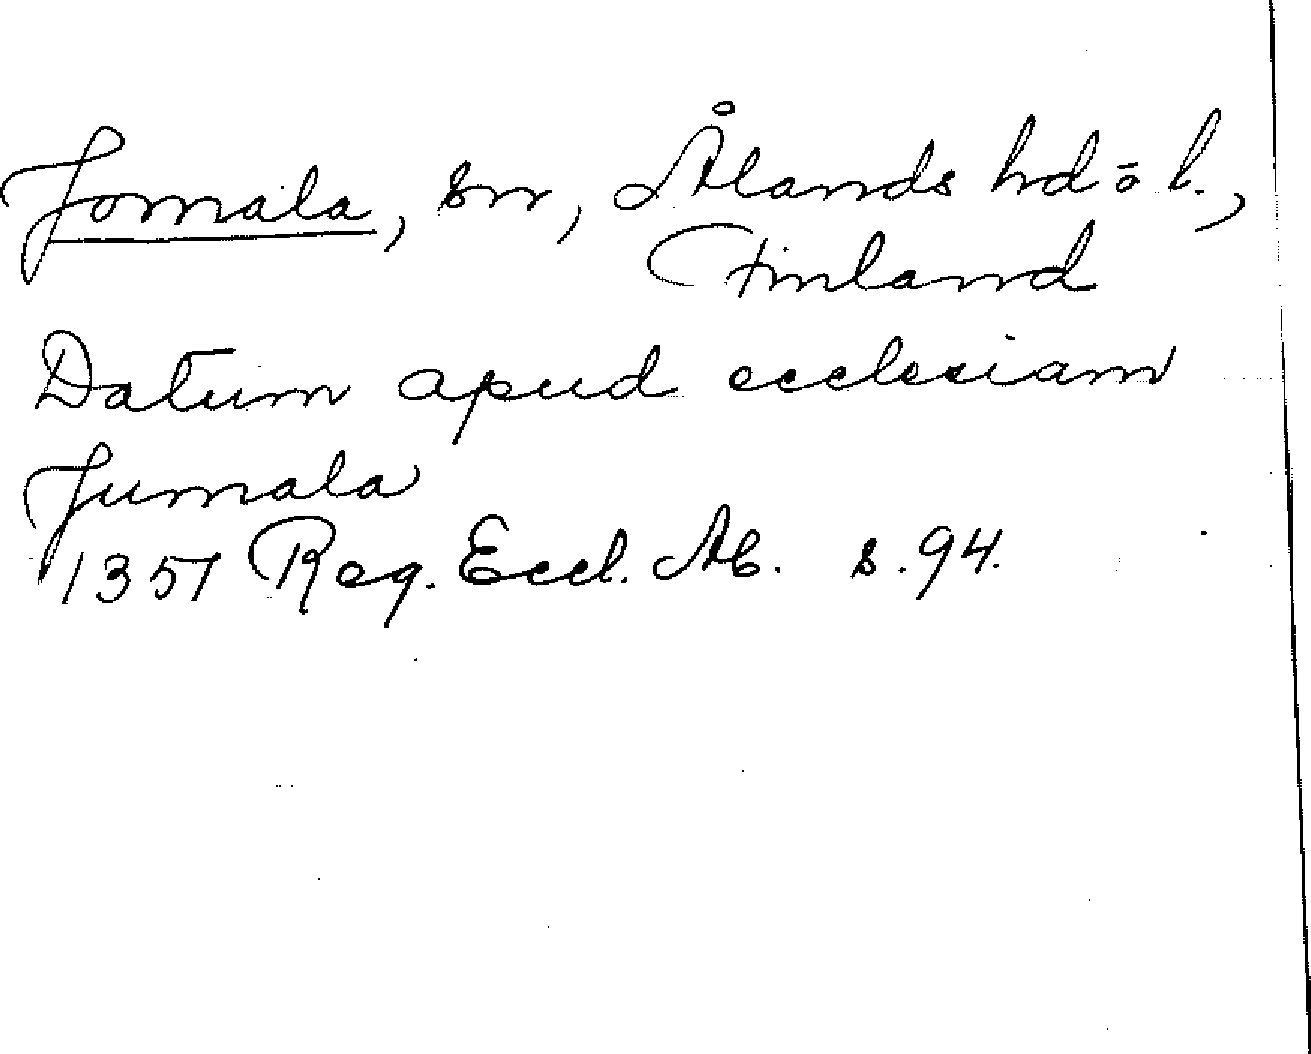 Jomala, sn, Ålands hd ō l.,
Finland
Datum apud ecclesiam
Jumala
1357 Reg. Eccl. Ab. s. 94.